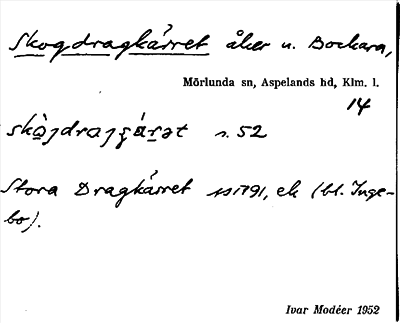 Skogdragkärret åker u. Bockara,
Mörlunda sn, Aspelands hd, Klm. l.
14
s. 52
Stora Dragkärret ss 1791, ek (bl. Inge-
bo).
Ivar Modéer 1952